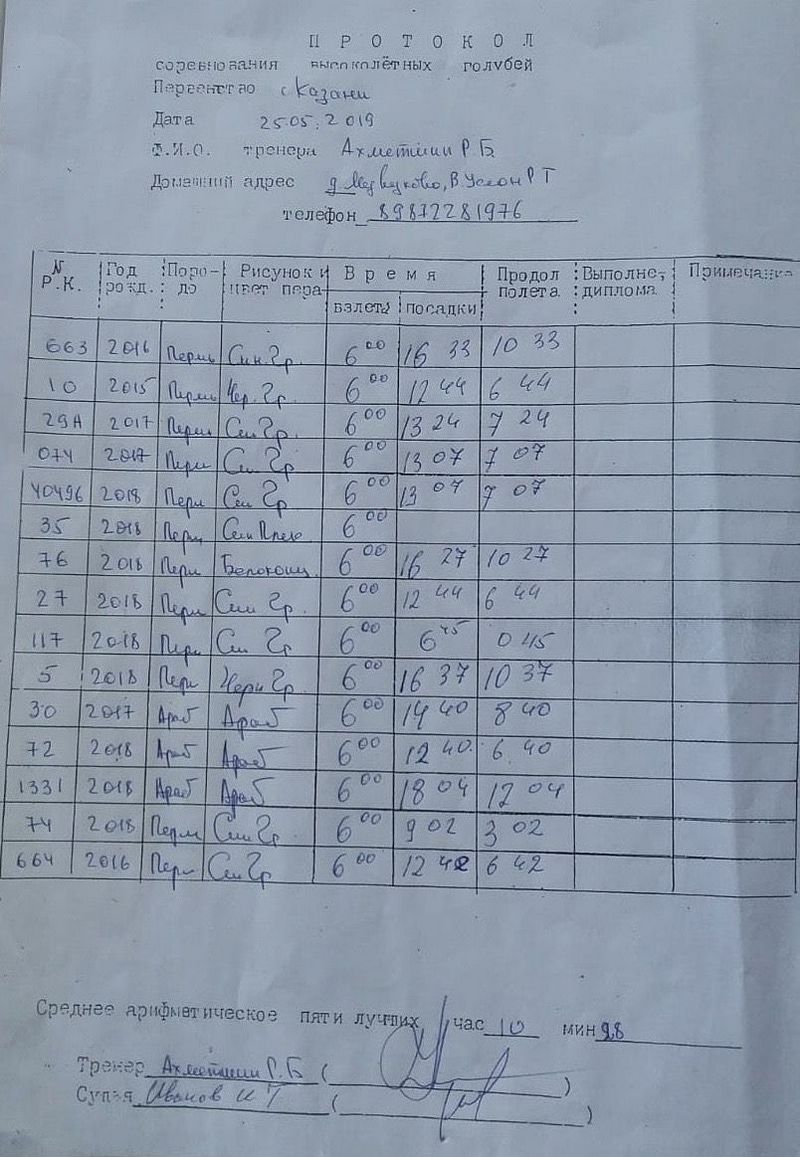 ПРОТОКОЛ
соревнования высоколётных голубей
Первенство г Казани
Дата 25.05.2019
Ф.И.О. тренера Ахметшин Р.Б.
Домашний адрес д. В.Услон РТ
телефон 89872281976
N Р.К. Год рожд. Поро-до Рисунок и цвет пера Время Продол полета Выполне, диплома Примечание
взлета посадки
663 2016 Пермь Син.Гр. 6 00 16 33 10 33
10 2015 Пермь Чер.Гр. 6 00 12 44 6 44
29А 2017 Перм Син Гр. 6 00 13 24 7 24
074 2017 Перм Син Гр 6 00 13 07 7 07
40496 2018 Перм Син Гр 6 00 13 07 7 07
35 2018 Перм Син 6 00
76 2018 Перм Белокоц. 6 00 16 27 10 27
27 2018 Перм Син Гр. 6 00 12 44 6 44
117 2018 Перм Син Гр 6 00 6 45 0 45
5 2018 Перм Черн Гр. 6 00 16 37 10 37
30 2017 Араб Араб 6 00 14 40 8 40
72 2018 Араб Араб 6 00 12 40. 6. 40
1331 2018 Араб Араб 6 00 18 04 12 04
74 2018 Перм Син Гр. 6 00 9 02 3 02
664 2016 Перм Син Гр 6 00 12 42 6 42
Среднее арифметическое пяти лучших час 10 мин 28
Тренер Ахметшин Р.Б ( )
Судья Иванов И Г ( )